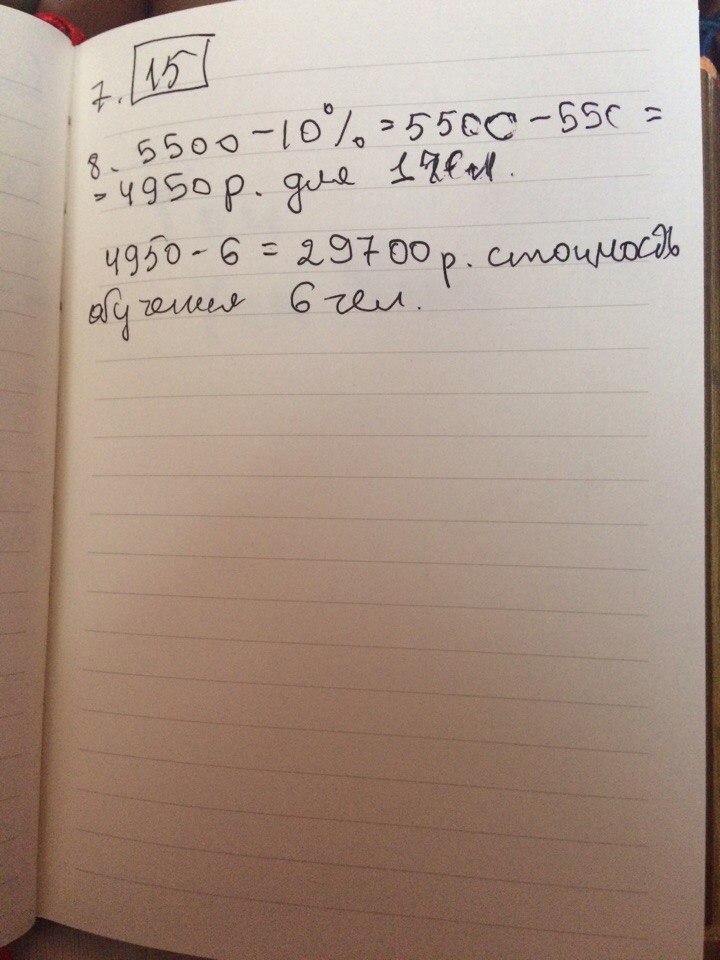 7. 15
8. 5500 - 10% = 5500 - 550 =
= 4950 р. для 1 чел.
4950 - 6 = 29700 р. стоимость
обучения 6 чел.